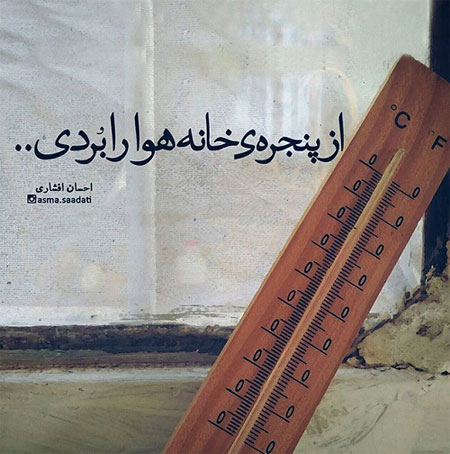 از پنجره‌ی خانه هوا را بُردی..
احسان افشاری
asma.saadati
°C
°F